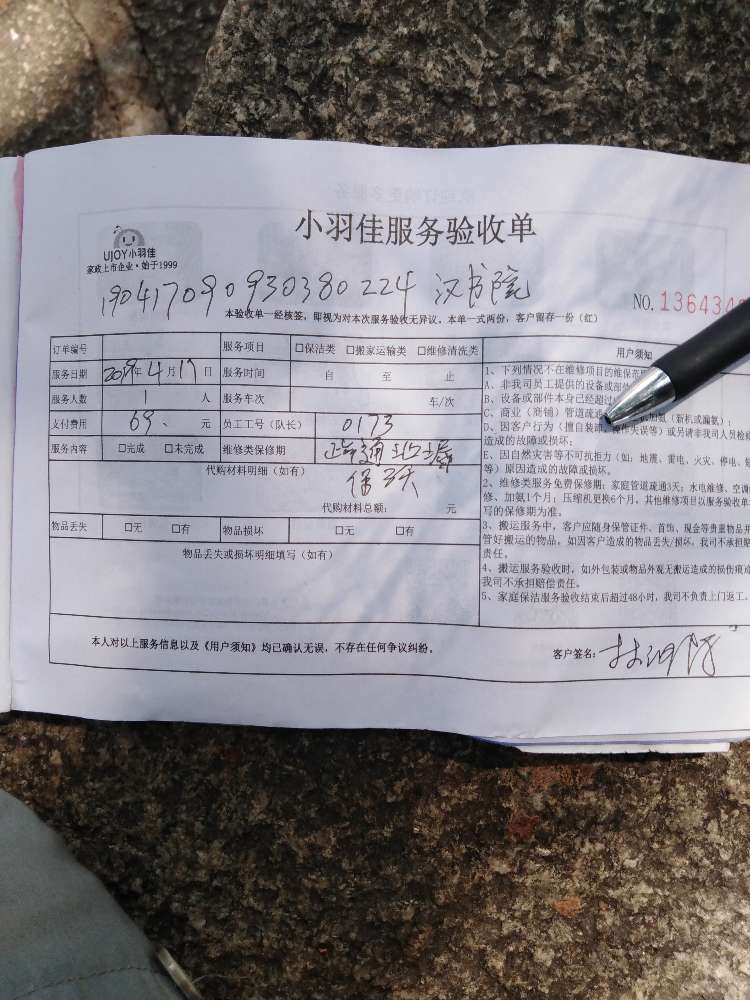 小羽佳服务验收单
UJOY小羽佳
家政上市企业·始于1999
190417090930380224 汉书院
NO. 136434
本验收单一经核签，即视为对本次服务验收无异议。本单一式两份，客户留存一份（红）
订单编号 服务项目 □保洁类 □搬家运输类 □维修清洗类
服务日期 2019年4月17日 服务时间 自 至 止
服务人数 1 人 服务车次 车/次
支付费用 69、元 员工工号（队长） 0173
服务内容 □完成 □未完成 维修类保修期
代购材料明细（如有）
代购材料总额： 元
物品丢失 □无 □有 物品损坏 □无 □有
物品丢失或损坏明细填写（如有）
用户须知
1、下列情况不在维修项目的维保范
A、非我司员工提供的设备或部
B、设备或部件本身已经超过
C、商业（商铺）管道疏通 加氨（新机或漏氨）；
D、因客户行为（擅自装卸、操作失误等）或另请非我司人员检
造成的故障或损坏；
E、因自然灾害等不可抗拒力（如：地震、雷电、火灾、停电、
等）原因造成的故障或损坏。
2、维修类服务免费保修期：家庭管道疏通3天；水电维修、空调
修、加氨1个月；压缩机更换6个月。其他维修项目以服务验收单
写的保修期为准。
3、搬运服务中，客户应随身保管证件、首饰、现金等贵重物品并
管好搬运的物品。如因客户造成的物品丢失/损坏，我司不承担赔
责任。
4、搬运服务验收时，如外包装或物品外观无搬运造成的损伤痕
我司不承担赔偿责任。
5、家庭保洁服务验收结束后超过48小时，我司不负责上门返工。
本人对以上服务信息以及《用户须知》均已确认无误，不存在任何争议纠纷。
客户签名：